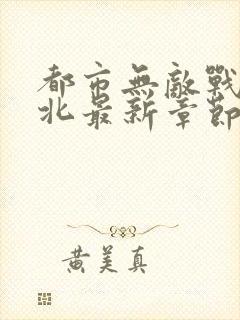 都市無敵戰
北最新章節
黃美真